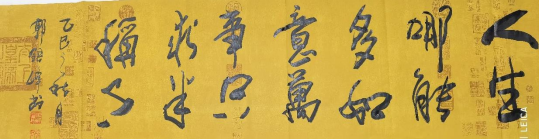 人生
哪能
多如
意萬
事只
求半
稱心
乙巳之秋月
LEICA